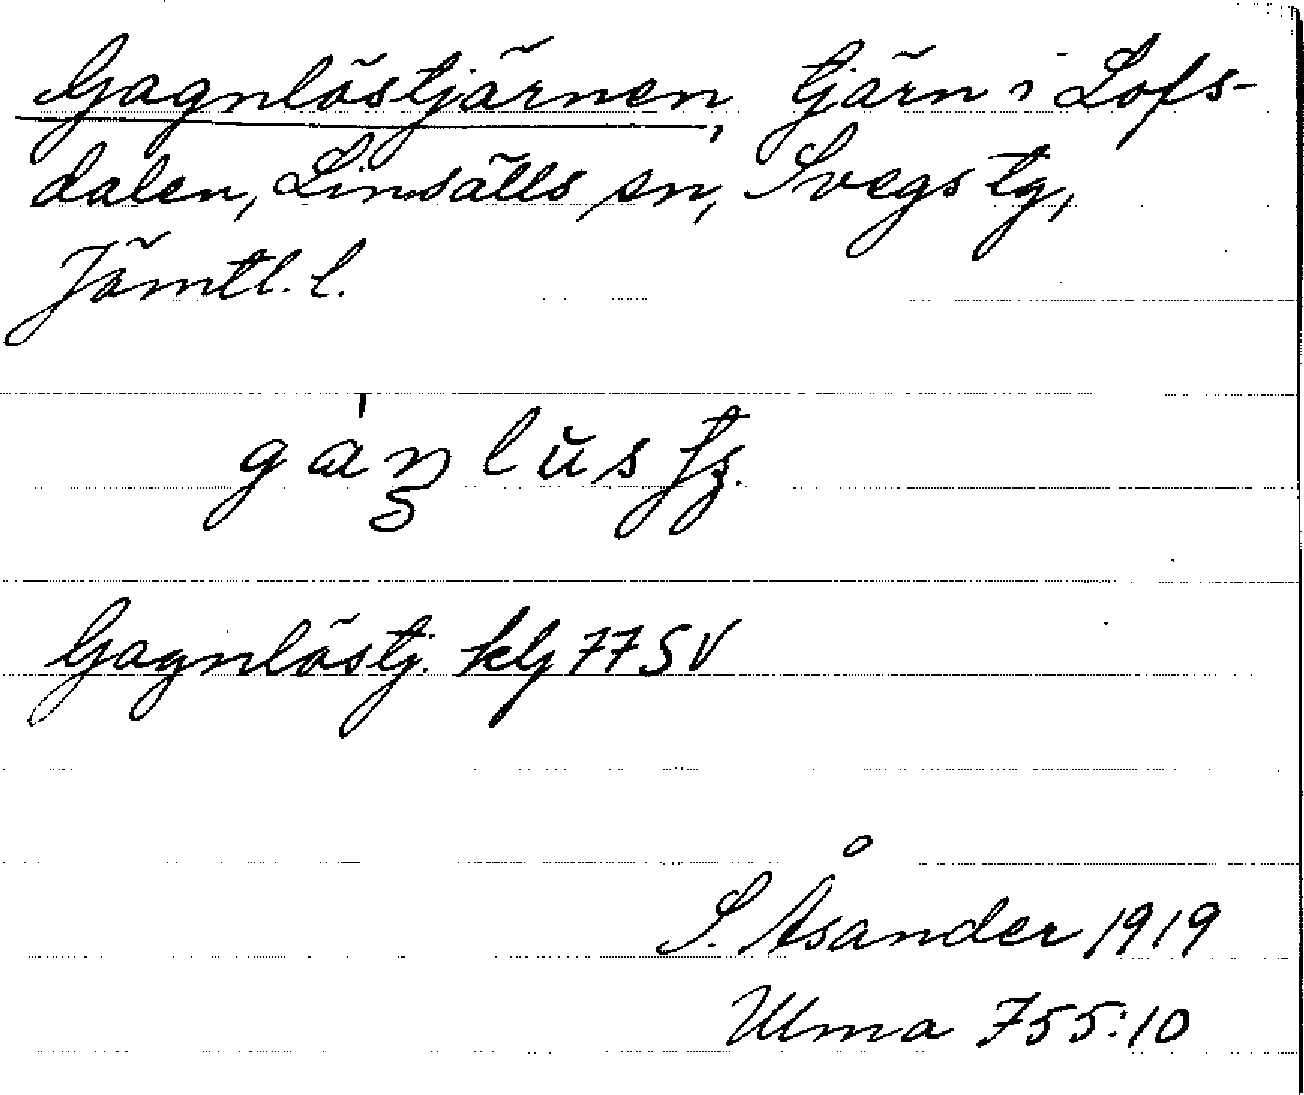 Gagnlöstjärnen, tjärn i Lofs-
dalen, Linsälls sn, Svegs tg,
Jämtl. l.
Gagnlöstj. klj 77 SV
S. Åsander 1919
Ulma 755:10